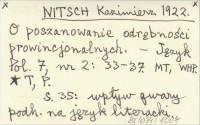 NITSCH Kazimierz 1922.
O poszanowanie odrębności
prowincjonalnych. – Język
Pol. 7, nr 2: 33–37 MT, WHP.
* T, P.
S. 35: wpływ gwary
podh. na język literacki